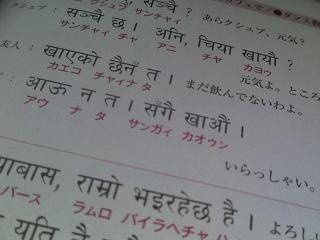 クシュブ, サンチャイ
सञ्चै छ । अनि, चिया खायौ ?
サンチャイ チャ アニ チヤ カヨウ
あらクシュブ、元気?
友人 : खाएको छैन त ।
カエコ チャイナ タ
元気よ。ところ
まだ飲んでないわよ。
: आऊ न त । सँगै खाऔं ।
アウ ナ タ サンガイ カオウン
いらっしゃい。
राम्रो भइरहेछ है ।
バース ラムロ バイラヘチャ ハ
よろし